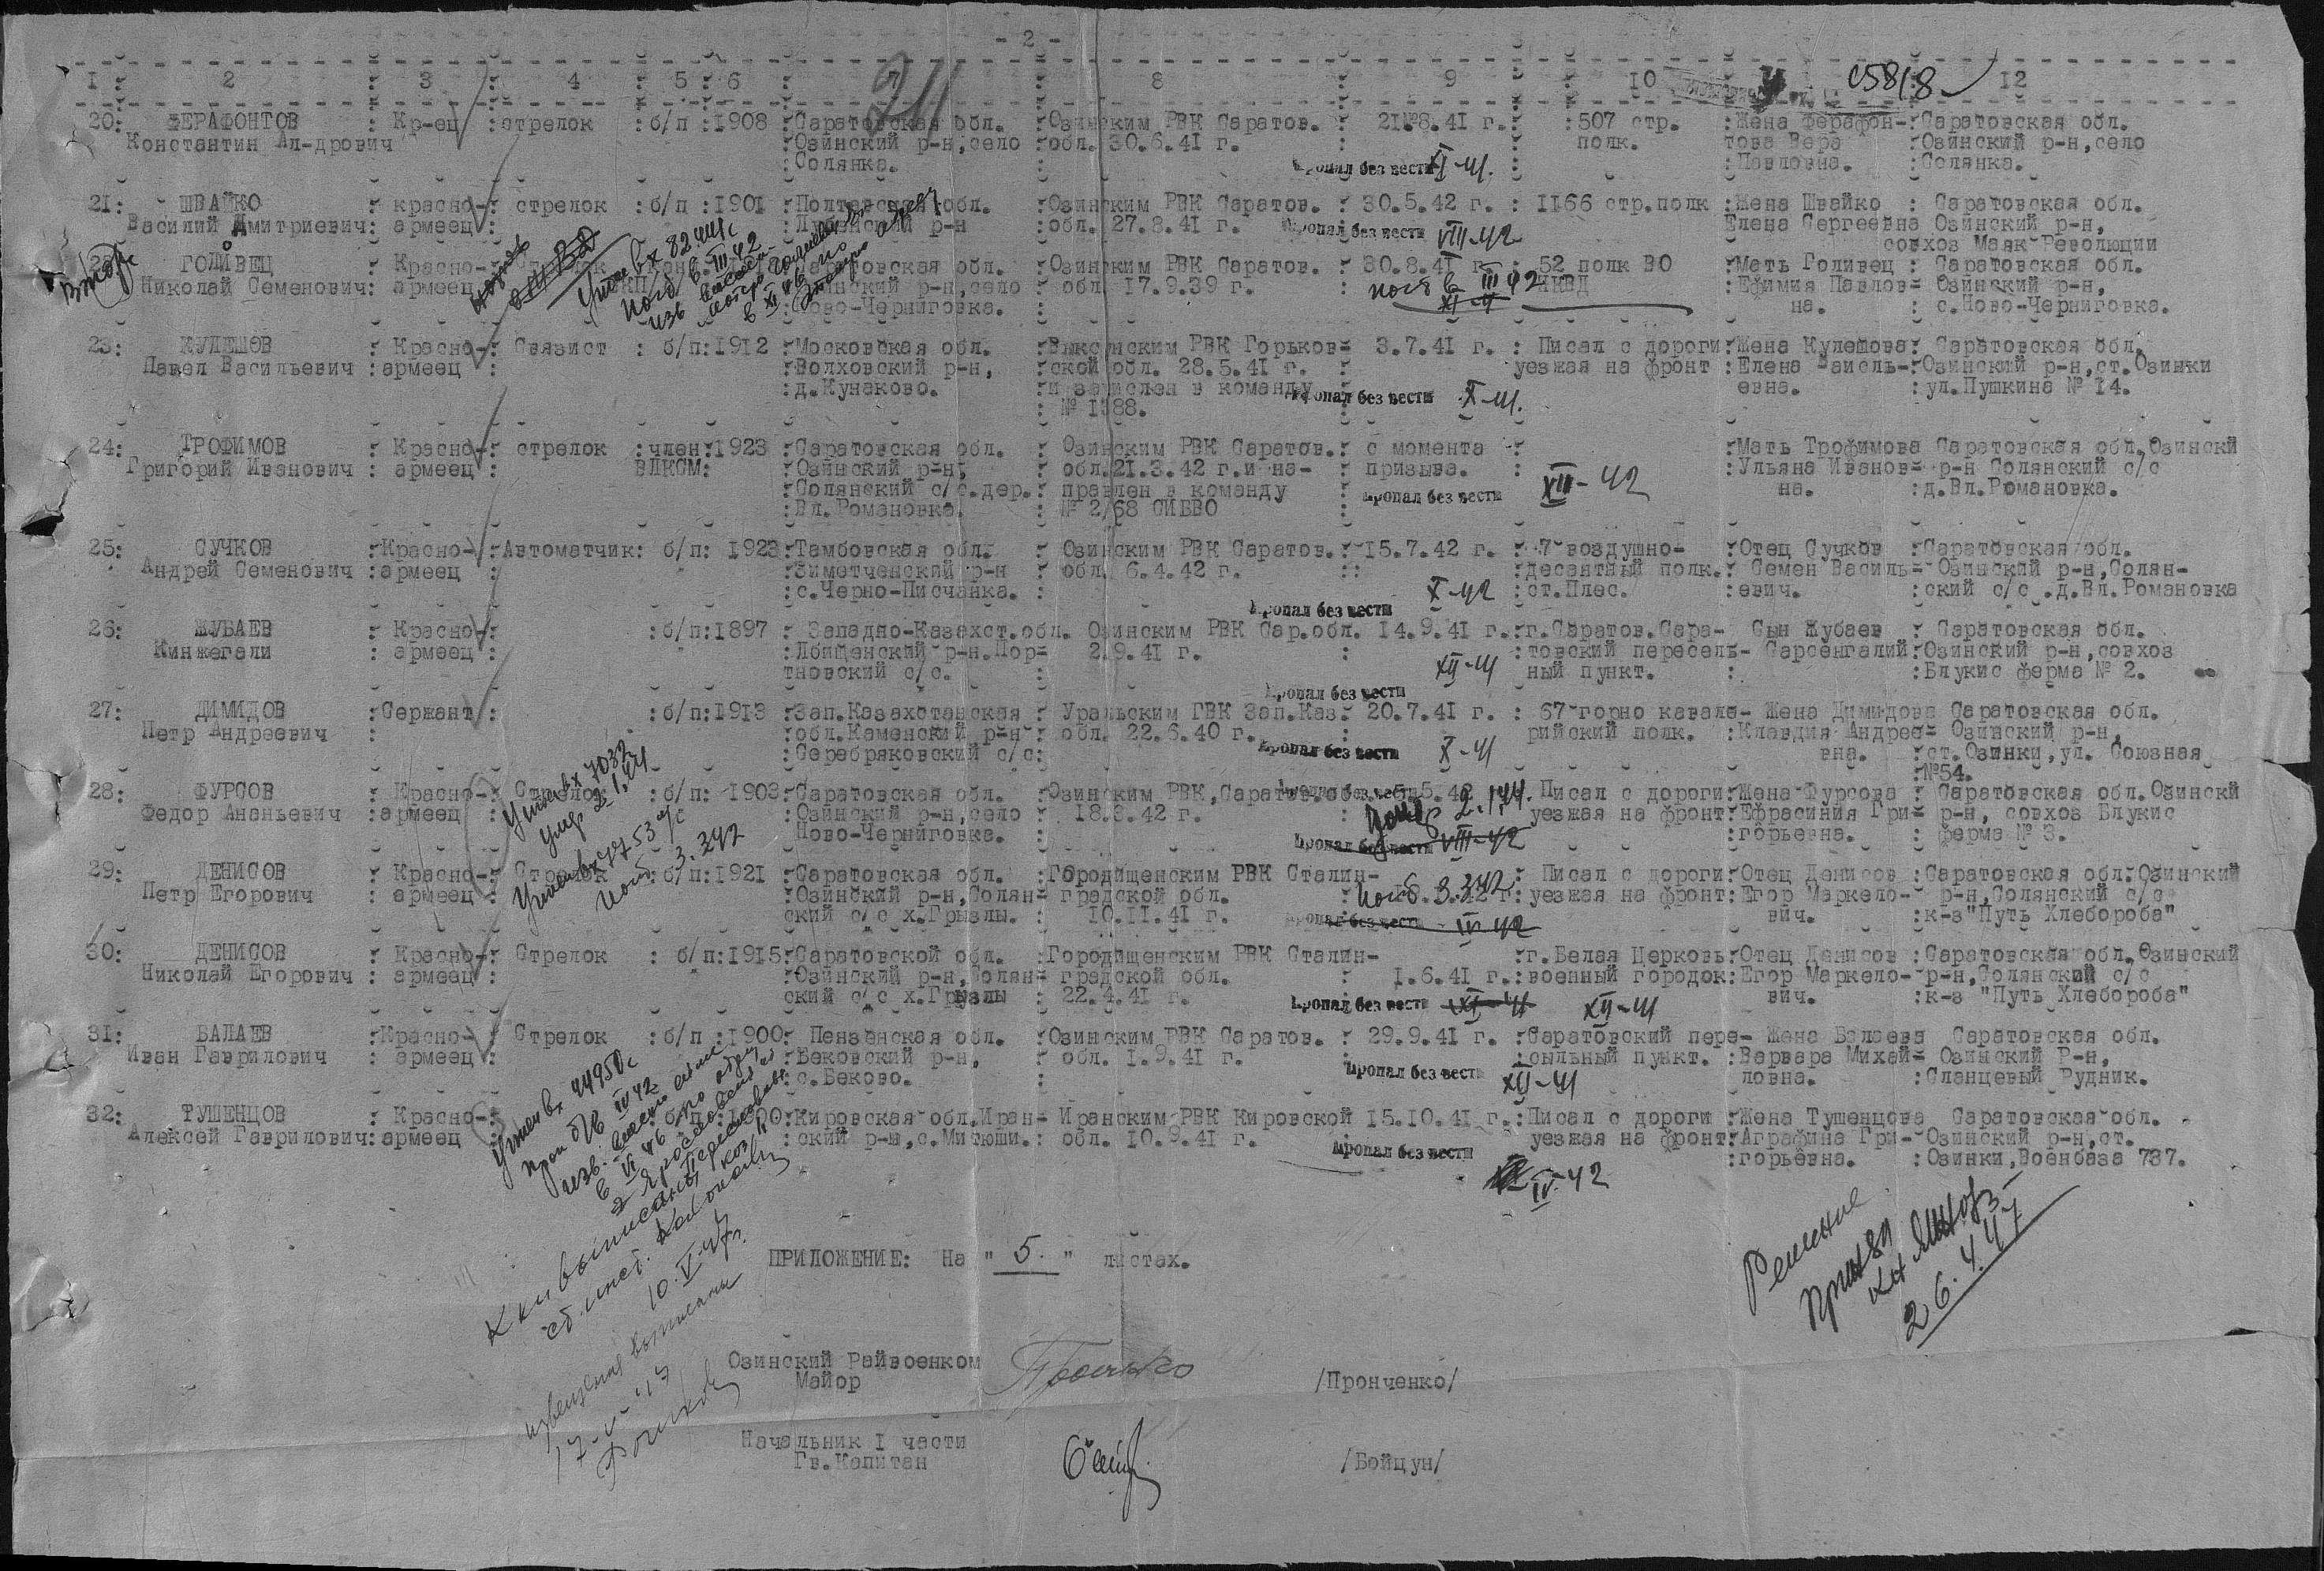 - 2 -
1 : 2 : 3 : 4 : 5 : 6 : 7 : 8 : 9 : 10 : : 12
с5818
20: ФЕРАФОНТОВ : Кр-ец : стрелок : б/п : 1908 : Саратовская обл. : Озинским РВК Саратов. : 21.8.41 г. : 507 стр. : Жена Ферафон- : Саратовская обл.
Константин Ал-дрович : Озинский р-н, село : обл. 30.6.41 г. : полк. : това Вера : Озинский р-н, село
: Солянка. : Пропал без вести XI-41. : Павловна. : Солянка.
21: ШВАЙКО : красно- : стрелок : б/п : 1901 : Полтавская обл. : Озинским РВК Саратов. : 30.5.42 г. : 1166 стр.полк : Жена Швайко : Саратовская обл.
Василий Дмитриевич : армеец : р-н : обл. 27.8.41 г. : Пропал без вести VIII-42 : Елена Сергеевна Озинский р-н,
совхоз Маяк Революции
ГОЛИВЕЦ : Красно- : обл. : Озинским РВК Саратов. : 30.8.41 г. : 52 полк ВО : Мать Голивец : Саратовская обл.
Николай Семенович : армеец : р-н, село : обл. 17.9.39 г. : погиб III 42 : НКВД : Ефимия Павлов- : Озинский р-н,
Ново-Черниговка. : XI-41 : на. : с.Ново-Черниговка.
23: КУЛЕШОВ : Красно- : Связист : б/п : 1912 : Московская обл. : Выксунским РВК Горьков- : 3.7.41 г. : Писал с дороги : Жена Кулешова : Саратовская обл.
Павел Васильевич : армеец : Волховский р-н, : ской обл. 28.5.41 г. : уезжая на фронт : Елена Василь- : Озинский р-н, ст.Озинки
: д.Кунаково. : и зачислен в команду : Пропал без вести X-41. : евна. : ул.Пушкина № 14.
: № 1388.
24: ТРОФИМОВ : Красно- : стрелок : член : 1923 : Саратовская обл. : Озинским РВК Саратов. : с момента : Мать Трофимова Саратовская обл.Озински
Григорий Иванович : армеец : ВЛКСМ : Озинский р-н, : обл.21.3.42 г.и на- : призыва. : Ульяна Иванов- : р-н Солянский с/с
: Солянский с/с.дер. : правлен в команду : Пропал без вести XII-42 : на. : д.Вл.Романовка.
: Вл.Романовка. : № 2/68 СИБВО
25: СУЧКОВ : Красно- : Автоматчик : б/п : 1923 : Тамбовская обл. : Озинским РВК Саратов. : 15.7.42 г. : 7 воздушно- : Отец Сучков : Саратовская обл.
Андрей Семенович : армеец : Зиметченский р-н : обл. 6.4.42 г. : десантный полк. : Семен Василь- : Озинский р-н, Солян-
: с.Черно-Писчанка. : X-42 : ст.Плес. : евич. : ский с/с .д.Вл.Романовка
Пропал без вести
26: ЖУБАЕВ : Красно- : б/п : 1897 : Западно-Казахст.обл. Озинским РВК Сар.обл. 14.9.41 г. : г.Саратов.Сара- Сын Жубаев : Саратовская обл.
Кинжегали : армеец : Лбищенский р-н.Пор- : 2.9.41 г. : товский пересель- Сарсенгалий : Озинский р-н, совхоз
тновский с/с. : XII-41 : ный пункт. : Блукис ферма № 2.
Пропал без вести
27: ДИМИДОВ : Сержант : б/п : 1913 : Зап.Казахстанская : Уральским ГВК Зап.Каз. : 20.7.41 г. : 67 горно кавале- Жена Димидова Саратовская обл.
Петр Андреевич : обл.Каменский р-н : обл. 22.6.40 г. : рийский полк. : Клавдия Андрее- Озинский р-н,
: Серебряковский с/с : Пропал без вести X-41 : вна. : ст.Озинки, ул. Союзная
№54.
28: ФУРСОВ : Красно- : Стрелок : б/п : 1903 : Саратовская обл. : Озинским РВК, Саратов.об. 5.42 : Писал с дороги : Жена Фурсова : Саратовская обл.Озински
Федор Ананьевич : армеец : Озинский р-н, село : 18.3.42 г. : 2.1.44. : уезжая на фронт : Ефрасиния Гри- : р-н, совхоз Блукис
: Ново-Черниговка. : Пропал без вести VIII-42 : горьевна. : ферма № 3.
29: ДЕНИСОВ : Красно- : Стрелок : б/п : 1921 : Саратовская обл. : Городищенским РВК Сталин- : Писал с дороги : Отец Денисов : Саратовская обл.Озинский
Петр Егорович : армеец : Озинский р-н, Солян- : градской обл. : погиб 3.3.42 г : уезжая на фронт : Егор Маркело- : р-н, Солянский с/с
ский с/с х.Грызлы. : 10.11.41 г. : Пропал без вести IV 42 : вич. : к-з"Путь Хлебороба"
30: ДЕНИСОВ : Красно- : Стрелок : б/п : 1915 : Саратовской обл. : Городищенским РВК Сталин- : г.Белая Церковь : Отец Денисов : Саратовская обл.Озинский
Николай Егорович : армеец : Озинский р-н, Солян- : градской обл. : 1.6.41 г. : военный городок : Егор Маркело- : р-н, Солянский с/с
ский с/с х.Грызлы : 22.4.41 г. : Пропал без вести XI-41 XII-41 : вич. : к-з "Путь Хлебороба"
31: БАЛАЕВ : Красно- : Стрелок : б/п : 1900 : Пензенская обл. : Озинским РВК Саратов. : 29.9.41 г. : Саратовский пере- Жена Балаева Саратовская обл.
Иван Гаврилович : армеец : Бековский р-н, : обл. 1.9.41 г. : сыльный пункт. : Варвара Михай- : Озинский Р-н,
: с.Беково. : Пропал без вести XII-41 : ловна. : Сланцевый Рудник.
32: ТУШЕНЦОВ : Красно- : б/п : 1900 : Кировская обл.Иран- : Иранским РВК Кировской 15.10.41 г. : Писал с дороги : Жена Тушенцова Саратовская обл.
Алексей Гаврилович : армеец : ский р-н, с.Митюши. : обл. 10.9.41 г. : уезжая на фронт : Аграфина Гри- : Озинский р-н, ст.
Пропал без вести : горьевна. : Озинки, Военбаза 737.
IV-42
ПРИЛОЖЕНИЕ: На " 5 " листах.
Решение
принял
26.4.47
10.V.47г.
извещения выписаны
17-V-47
Озинский Райвоенком
Майор /Пронченко/
Начальник 1 части
Гв.Капитан /Бойцун/